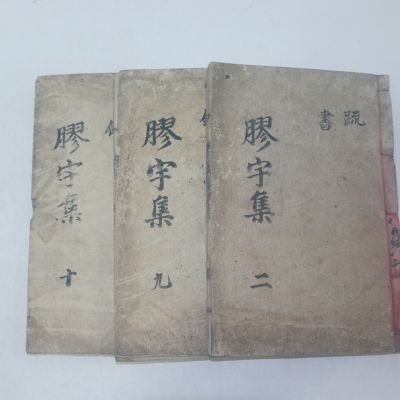 疏
書
膠宇集
二
膠宇集
九
膠宇集
十